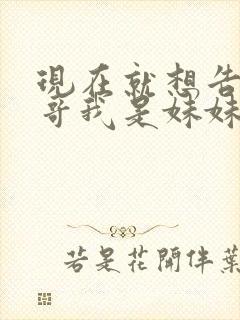 現在就想告
哥我是妹妹
若是花開伴葉